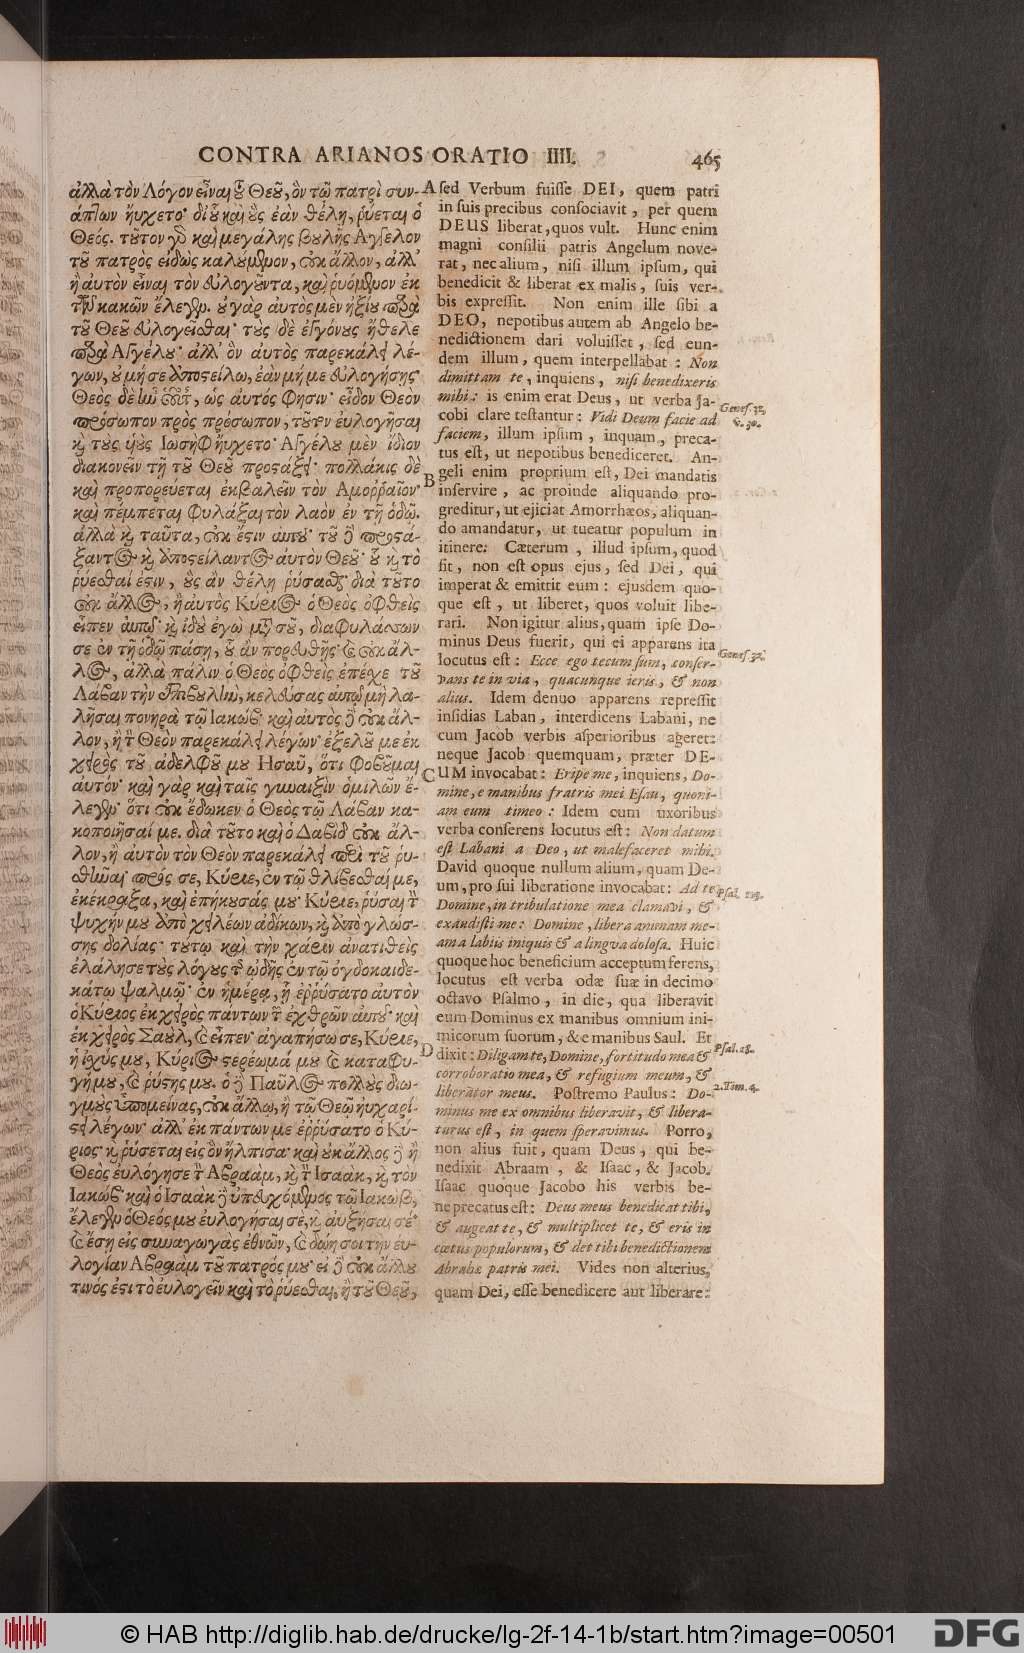 CONTRA ARIANOS ORATIO IIII. 465
ἀλλὰ τὸν Λόγον εἶναι τοῦ Θεοῦ, ὃν τῷ πατρὶ συν-
άπτων ἤυχετο· δι' οὗ καὶ οὓς ἐὰν θέλῃ, ῥύεται ὁ
Θεός. τοῦτον γὰρ καὶ μεγάλης βουλῆς Ἄγγελον
τοῦ πατρὸς εἰδὼς καλούμενον, οὐκ ἄλλον, ἀλλ'
ἢ αὐτὸν εἶναι τὸν εὐλογοῦντα, καὶ ῥυόμενον ἐκ
τῶν κακῶν ἔλεγεν. οὐ γὰρ αὐτὸς μὲν ἠξίου παρὰ
τοῦ Θεοῦ εὐλογεῖσθαι· τοὺς δὲ ἐγγόνους ἤθελε
παρὰ Ἀγγέλου· ἀλλ' ὃν αὐτὸς παρεκάλει λέ-
γων, οὐ μή σε ἀποστείλω, ἐὰν μή με εὐλογήσῃς·
Θεὸς δὲ ἦν οὗτος, ὡς αὐτός φησιν· εἶδον Θεὸν
πρόσωπον πρὸς πρόσωπον, τοῦτον ἐυλογῆσαι
καὶ τοὺς υἱοὺς Ἰωσὴφ ἤυχετο· Ἀγγέλου μὲν ἴδιον
διακονεῖν τῇ τοῦ Θεοῦ προστάξει· πολλάκις δὲ
καὶ προπορεύεται ἐκβαλεῖν τὸν Ἀμορραῖον·
καὶ πέμπεται φυλάξαι τὸν λαὸν ἐν τῇ ὁδῷ.
ἀλλὰ καὶ ταῦτα, οὐκ ἔστιν αὐτοῦ· τοῦ δὲ προστά-
ξαντος καὶ ἀποστείλαντος αὐτὸν Θεοῦ· οὗ καὶ τὸ
ῥύεσθαί ἐστιν, οὓς ἂν θέλῃ ῥύσασθαι· διὰ τοῦτο
οὐκ ἄλλος, ἢ αὐτὸς Κύριος ὁ Θεὸς ὀφθεὶς
εἶπεν αὐτῷ· καὶ ἰδοὺ ἐγὼ μετὰ σοῦ, διαφυλάσσων
σε ἐν τῇ ὁδῷ πάσῃ, οὗ ἂν πορευθῇς· καὶ οὐκ ἄλ-
λος, ἀλλὰ πάλιν ὁ Θεὸς ὀφθεὶς ἐπέχε τοῦ
Λάβαν τὴν ἐπιβουλὴν, κελεύσας αὐτῷ μὴ λα-
λῆσαι πονηρὰ τῷ Ἰακώβ· καὶ αὐτὸς δὲ οὐκ ἄλ-
λον, ἢ τὸν Θεὸν παρεκάλει λέγων· ἐξελοῦ με ἐκ
χειρὸς τοῦ ἀδελφοῦ μου Ησαῦ, ὅτι φοβοῦμαι
αὐτόν· καὶ γὰρ καὶ ταῖς γυναιξὶν ὁμιλῶν ἔ-
λεγεν· ὅτι οὐκ ἔδωκεν ὁ Θεὸς τῷ Λάβαν κα-
κοποιῆσαί με. διὰ τοῦτο καὶ ὁ Δαβὶδ οὐκ ἄλ-
λον, ἢ αὐτὸν τὸν Θεὸν παρεκάλει περὶ τοῦ ῥυ-
σθῆναι· πρός σε, Κύριε, ἐν τῷ θλίβεσθαί με,
ἐκέκραξα, καὶ ἐπήκουσάς μου· Κύριε, ῥῦσαι τὴν
ψυχήν μου ἀπὸ χειλέων ἀδίκων, καὶ ἀπὸ γλώσ-
σης δολίας· τούτῳ καὶ τὴν χάριν ἀνατιθεὶς
ἐλάλησε τοὺς λόγους τῆς ᾠδῆς ἐν τῷ ὀγδοκαιδε-
κάτῳ ψαλμῷ· ἐν ἡμέρᾳ, ᾗ ἐρρύσατο αὐτὸν
ὁ Κύριος ἐκ χειρὸς πάντων τῶν ἐχθρῶν αὐτοῦ· καὶ
ἐκ χειρὸς Σαοὺλ, καὶ εἶπεν· ἀγαπήσω σε, Κύριε,
ἡ ἰσχύς μου, Κύριος στερέωμά μου καὶ καταφυ-
γή μου, καὶ ῥύστης μου. ὁ δὲ Παῦλος πολλοὺς διω-
γμοὺς ὑπομείνας, οὐκ ἄλλῳ, ἢ τῷ Θεῷ ἠυχαρί-
στει λέγων· ἀλλ' ἐκ πάντων με ἐρρύσατο ὁ Κύ-
ριος· καὶ ῥύσεται εἰς ὃν ἤλπισα· καὶ οὐκ ἄλλος δὲ ἢ
Θεὸς ἐυλόγησε τὸν Ἀβραὰμ, καὶ τὸν Ἰσαὰκ, καὶ τὸν
Ἰακώβ· καὶ ὁ Ἰσαὰκ δὲ ὑπευχόμενος τῷ Ἰακὼβ,
ἔλεγεν· ὁ Θεός μου ἐυλογήσαι σε, καὶ αὐξήσαι σε·
καὶ ἔσῃ εἰς συναγωγὰς ἐθνῶν, καὶ δῴη σοι τὴν ἐυ-
λογίαν Ἀβραὰμ τοῦ πατρός μου· εἰ δὲ οὐκ ἄλλου
τινός ἐστι τὸ ἐυλογεῖν καὶ τὸ ῥύεσθαι, ἢ τοῦ Θεοῦ,
A sed Verbum fuisse DEI, quem patri
in suis precibus consociavit, per quem
DEUS liberat, quos vult. Hunc enim
magni consilii patris Angelum nove-
rat, nec alium, nisi illum ipsum, qui
benedicit & liberat ex malis, suis ver-
bis expressit. Non enim ille sibi a
DEO, nepotibus autem ab Angelo be-
nedictionem dari voluisset, sed eun-
dem illum, quem interpellabat: Non
dimittam te, inquiens, nisi benedixeris
mihi: is enim erat Deus, ut verba Ja-
cobi clare testantur: Vidi Deum facie ad
faciem, illum ipsum, inquam, preca-
tus est, ut nepotibus benediceret. An-
B geli enim proprium est, Dei mandatis
inservire, ac proinde aliquando pro-
greditur, ut ejiciat Amorrhæos, aliquan-
do amandatur, ut tueatur populum in
itinere: Cæterum, illud ipsum, quod
sit, non est opus ejus, sed Dei, qui
imperat & emittit eum: ejusdem quo-
que est, ut liberet, quos voluit libe-
rari. Non igitur alius, quam ipse Do-
minus Deus fuerit, qui ei apparens ita
locutus est: Ecce ego tecum sum, conser-
vans te in via, quacunque ieris, & non
alius. Idem denuo apparens repressit
insidias Laban, interdicens Labani, ne
cum Jacob verbis asperioribus ageret:
neque Jacob quemquam, præter DE-
C UM invocabat: Eripe me, inquiens, Do-
mine, e manibus fratris mei Esau, quoni-
am eum timeo: Idem cum uxoribus
verba conserens locutus est: Non datum
est Labani a Deo, ut malefaceret mihi.
David quoque nullum alium, quam De-
um, pro sui liberatione invocabat: Ad te
Domine, in tribulatione mea clamavi, &
exaudisti me: Domine, libera animam me-
am a labiis iniquis & a lingva dolosa. Huic
quoque hoc beneficium acceptum ferens,
locutus est verba odæ suæ in decimo
octavo Psalmo, in die, qua liberavit
eum Dominus ex manibus omnium ini-
micorum suorum, & e manibus Saul. Et
D dixit: Diligam te, Domine, fortitudo mea &
corroboratio mea, & refugium meum, &
liberator meus. Postremo Paulus: Do-
minus me ex omnibus liberavit, & libera-
turus est, in quem speravimus. Porro,
non alius fuit, quam Deus, qui be-
nedixit Abraam, & Isaac, & Jacob.
Isaac quoque Jacobo his verbis be-
ne precatus est: Deus meus benedicat tibi,
& augeat te, & multiplicet te, & eris in
cœtus populorum, & det tibi benedictionem
Abrahæ patris mei. Vides non alterius,
quam Dei, esse benedicere aut liberare:
Genes. 32.
v. 30.
Genes. 32.
Psal. 119.
Psal. 18.
2. Tim. 4.
© HAB http://diglib.hab.de/drucke/lg-2f-14-1b/start.htm?image=00501
DFG